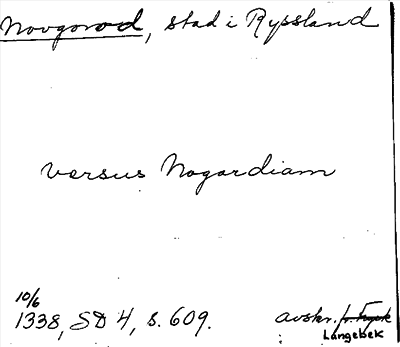 Novgorod, stad i Ryssland
versus Nogardiam
10/6
1338, SD 4, s. 609.
avskr.
Langebek